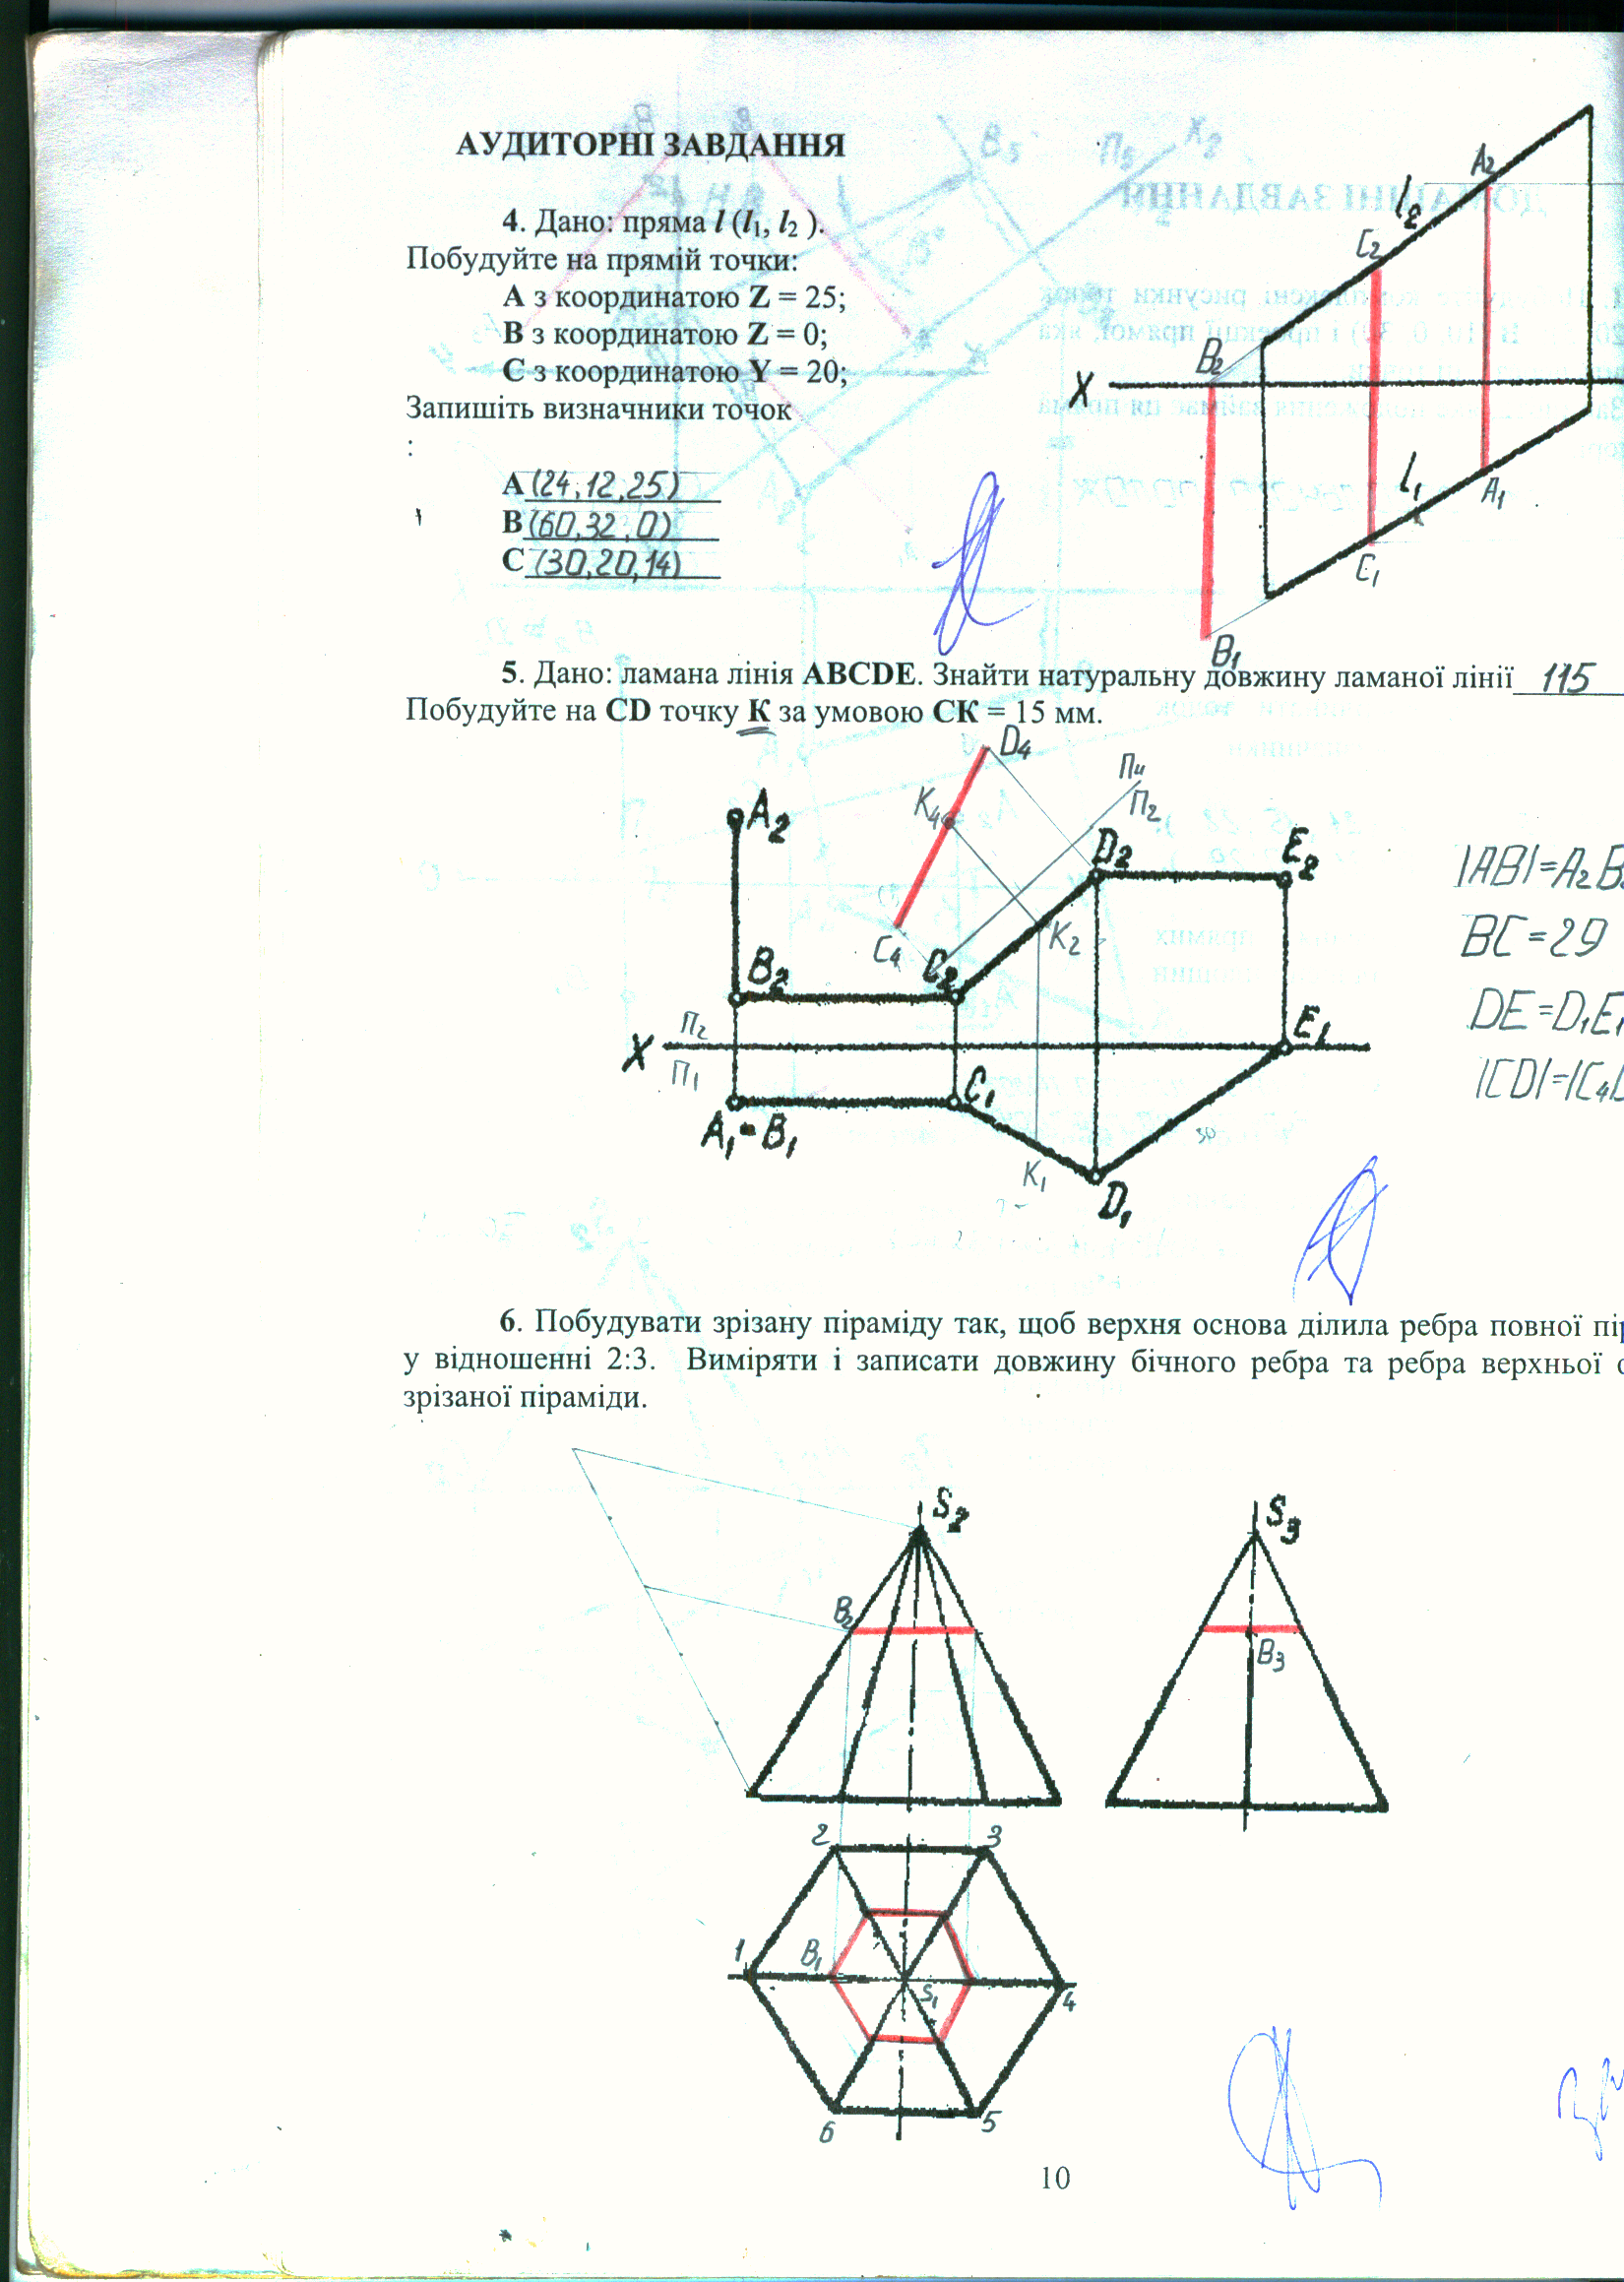 АУДИТОРНІ ЗАВДАННЯ
4. Дано: пряма l (l₁, l₂ ).
Побудуйте на прямій точки:
А з координатою Z = 25;
В з координатою Z = 0;
С з координатою Y = 20;
Запишіть визначники точок
:
А (24,12,25)
В (60,32,0)
С (30,20,14)
A₂
l₂
C₂
B₂
X
l₁
A₁
C₁
B₁
5. Дано: ламана лінія ABCDE. Знайти натуральну довжину ламаної лінії 115
Побудуйте на CD точку К за умовою СК = 15 мм.
D₄
П₄
П₂
K₄
A₂
D₂
E₂
C₄
K₂
B₂
C₂
X
П₂
П₁
E₁
C₁
A₁ - B₁
30
K₁
D₁
|AB|=A₂B
BC=29
DE=D₁E₁
|CD|=|C₄
6. Побудувати зрізану піраміду так, щоб верхня основа ділила ребра повної
у відношенні 2:3. Виміряти і записати довжину бічного ребра та ребра верхньої
зрізаної піраміди.
S₂
S₃
B₂
B₃
2
3
1
B₁
S₁
4
6
5
10